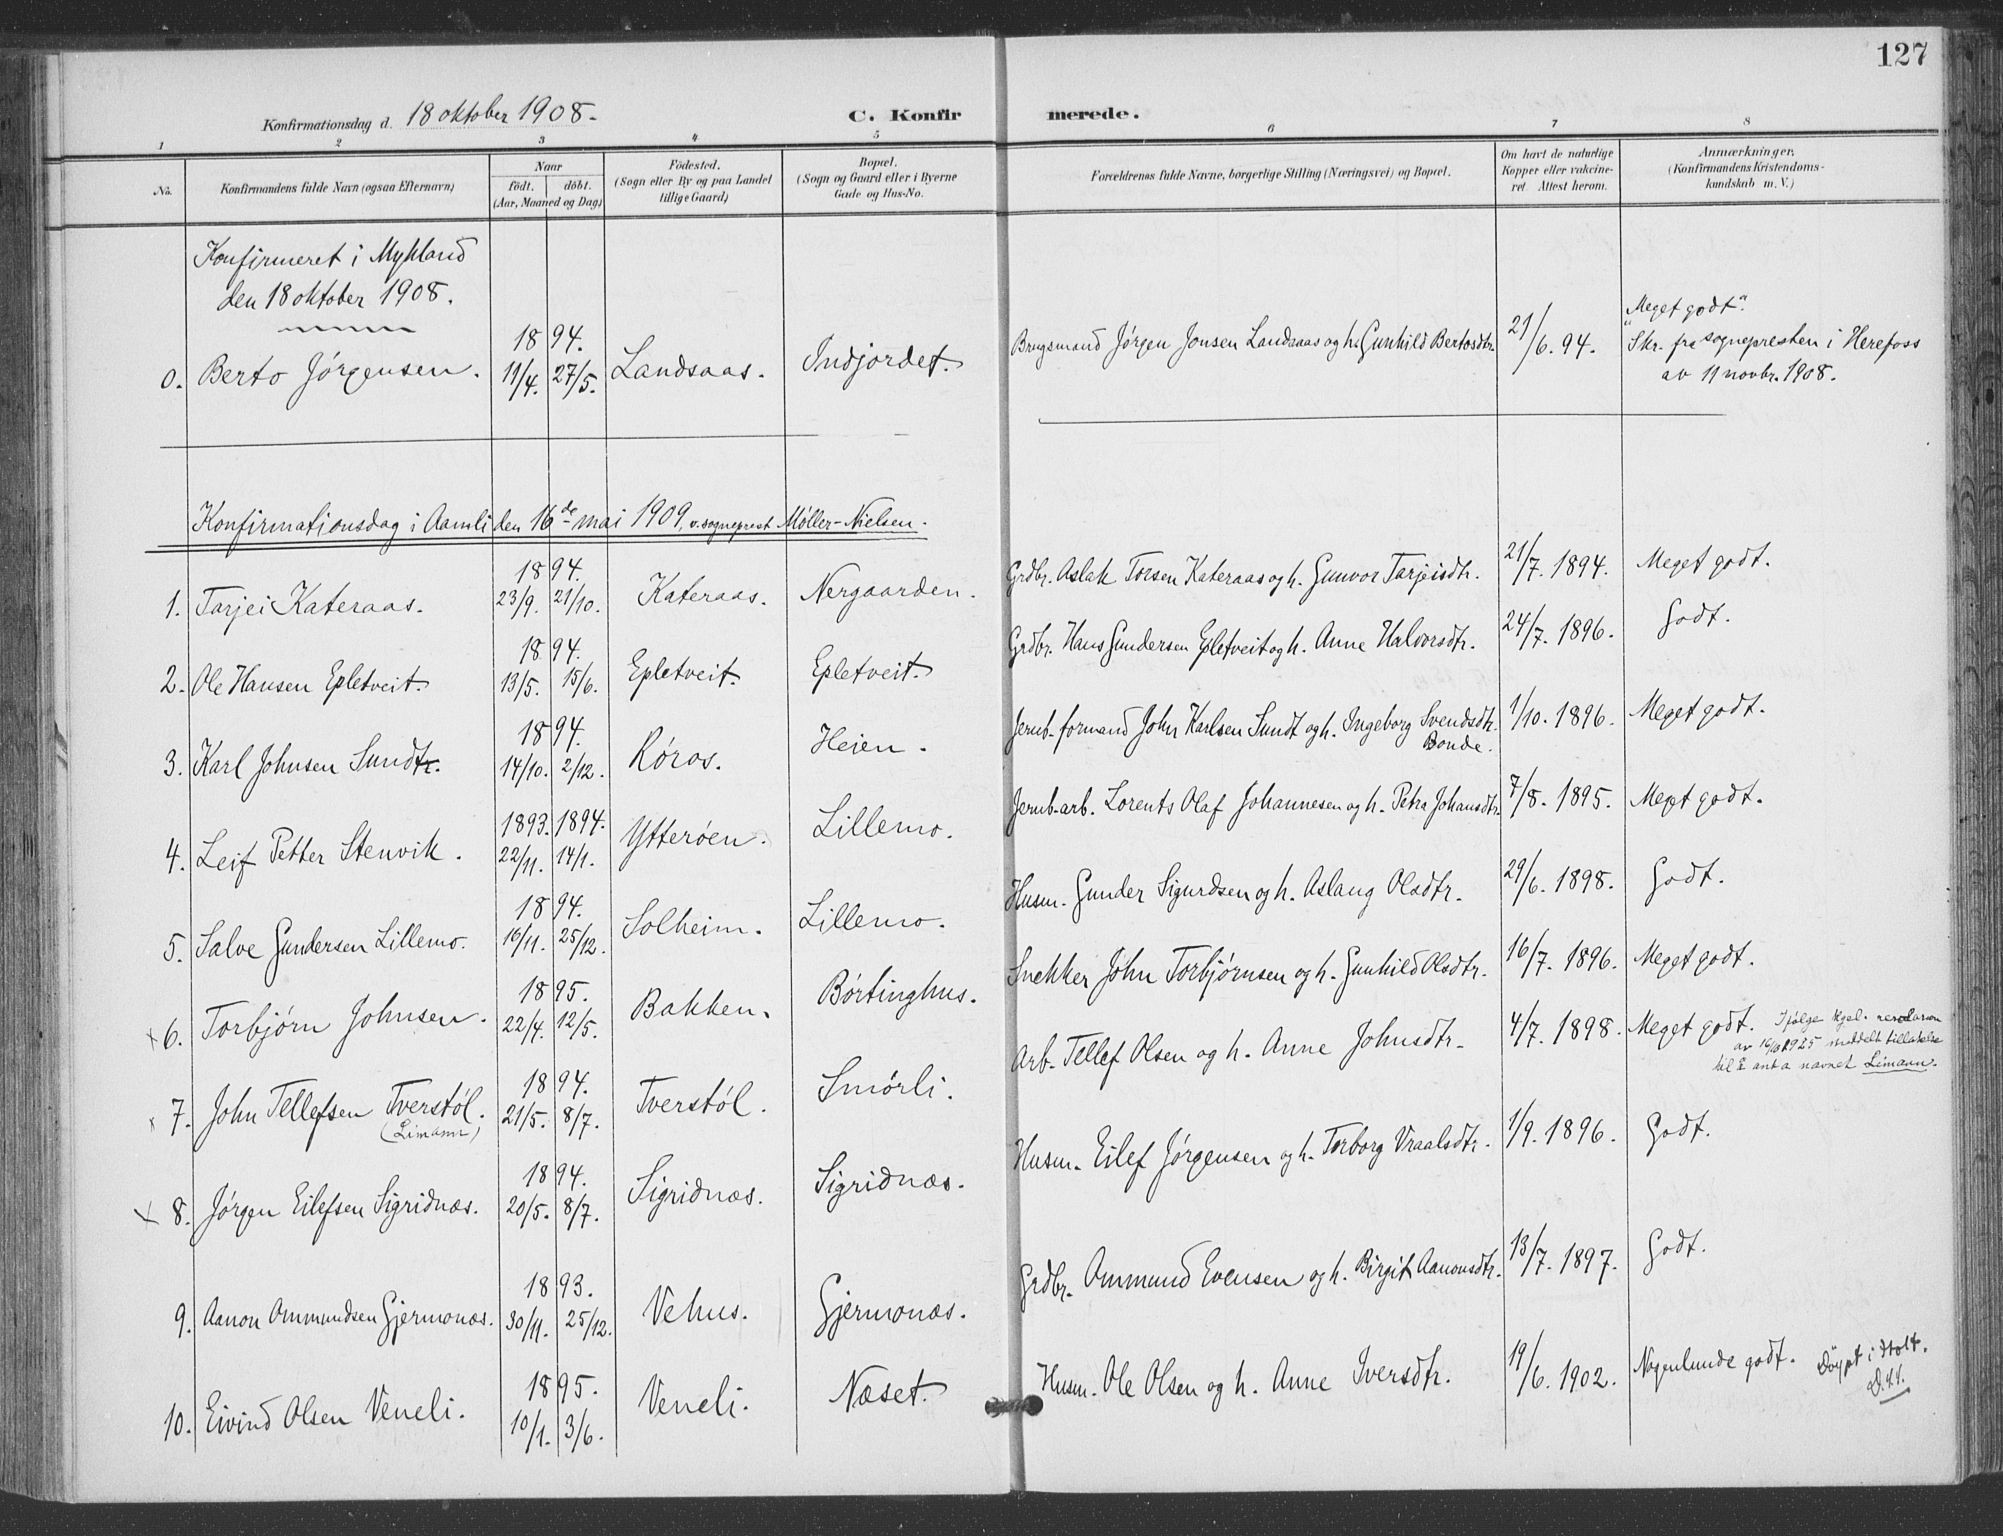 127
Konfirmationsdag d. 18 oktober 1908.
C. Konfirmerede.
1 2 3 4 5 6 7 8
No. Konfirmandens fulde Navn (ogsaa Efternavn) Naar født. døbt. (Aar, Maaned og Dag) Fødested. (Sogn eller By og paa Landet tillige Gaard) Bopæl. (Sogn og Gaard eller i Byerne Gade og Hus-No. Forældrenes fulde Navne, borgerlige Stilling (Næringsvei) og Bopæl. Om havt de naturlige Kopper eller vakcineret Attest herom. Anmærkninger. (Konfirmandens Kristendomskundskab m. V.)
Konfirmeret i Mykland
den 18 oktober 1908.
0. Berto Jørgensen. 1894. 11/4. 27/5. Landsaas. Indjordet. Brugsmand Jørgen Jonsen Landsaas og h. Gunhild Bertosdtr. 21/6. 94. "Meget godt".
Skr. fra sognepresten i Herefoss
av 11 novbr. 1908.
Konfirmationsdag i Aamli den 16de mai 1909, v. sogneprest Møller-Nielsen.
1. Tarjei Kateraas. 1894. 23/9. 21/10. Kateraas. Nergaarden. Grdbr. Aslak Torsen Kateraas og h. Gunvor Tarjeisdtr. 21/7. 1894. Meget godt.
2. Ole Hansen Epletveit. 1894. 13/5. 15/6. Epletveit. Epletveit. Grdbr. Hans Gundersen Epletveit og h. Anne Halvorsdtr. 24/7. 1896. Godt.
3. Karl Johnsen Sundt. 1894. 14/10. 2/12. Røros. Heien. Jernb-formand John Karlsen Sundt og h. Ingeborg Svendsdtr. Bonde. 1/10. 1896. Meget godt.
4. Leif Petter Stenvik. 1893. 1894. 22/11. 14/1. Ytterøen. Lillemo. Jernb-arb. Lorents Olaf Johannesen og h. Petra Johansdtr. 7/8. 1895. Meget godt.
5. Salve Gundersen Lillemo. 1894. 16/11. 25/12. Solheim. Lillemo. Husm. Gunder Sigurdsen og h. Aslaug Olsdtr. 29/6. 1898. Godt.
x 6. Torbjørn Johnsen. 1895. 22/4. 12/5. Bakken. Børtinghus. Snekker John Torbjørnsen og h. Gunhild Olsdtr. 16/7. 1896. Meget godt.
x 7. John Tellefsen Tverstøl. (Limann) 1894. 21/5. 8/7. Tverstøl. Smørli. Arb. Tellef Olsen og h. Anne Johnsdtr. 4/7. 1898. Meget godt. Ifølge kgel.
av 1925 meddelt tillatelse
til å anta navnet Limann.
x 8. Jørgen Eilefsen Sigridnæs. 1894. 20/5. 8/7. Sigridnæs. Sigridnæs. Husm. Eilef Jørgensen og h. Torborg Vraalsdtr. 1/9. 1896. Godt.
9. Aanon Ommundsen Gjermonæs. 1893. 30/11. 25/12. Vehus. Gjermonæs. Grdbr. Ommund Evensen og h. Birgit Aanonsdtr. 13/7. 1897. Godt.
10. Eivind Olsen Veneli. 1895. 10/1. 3/6. Veneli. Næset. Husm. Ole Olsen og h. Anne Iversdtr. 19/6. 1902. Nogenlunde godt. Døypt i